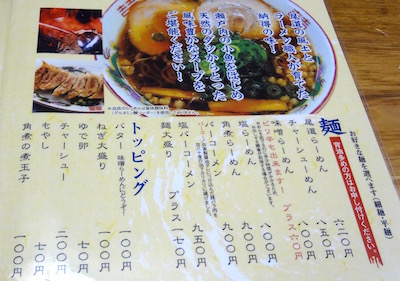 尾道の風土と
ラーメン職人が育てた
納得の味!
瀬戸内の小魚をはじめ
天然のダシからとった
風味豊かなスープを
ご堪能ください!
麺
お好きな麺を選べます(細麺・平麺)
背油多めの方はお申し付けください。
尾道らーめん 六二〇円
チャーシューめん 八五〇円
味噌らーめん 八〇〇円
ピリ辛も出来ます! プラス六〇円
塩らーめん 八〇〇円
角煮らーめん 九〇〇円
バターコーメン 九〇〇円
塩バターコーメン 九五〇円
麺大盛り プラス一七〇円
トッピング
バター 味噌らーめんにどうぞ! 一〇〇円
ねぎ大盛り 一〇〇円
ゆで卵 七〇円
チャーシュー 二〇〇円
もやし 七〇円
角煮の煮玉子 一〇〇円